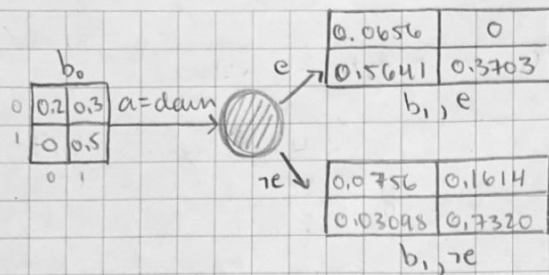 b₀
0 0.2 0.3
1 0 0.5
0 1
a=down
e
0.0656 0
0.5641 0.3703
b₁, e
¬e
0.0756 0.1614
0.03098 0.7320
b₁, ¬e